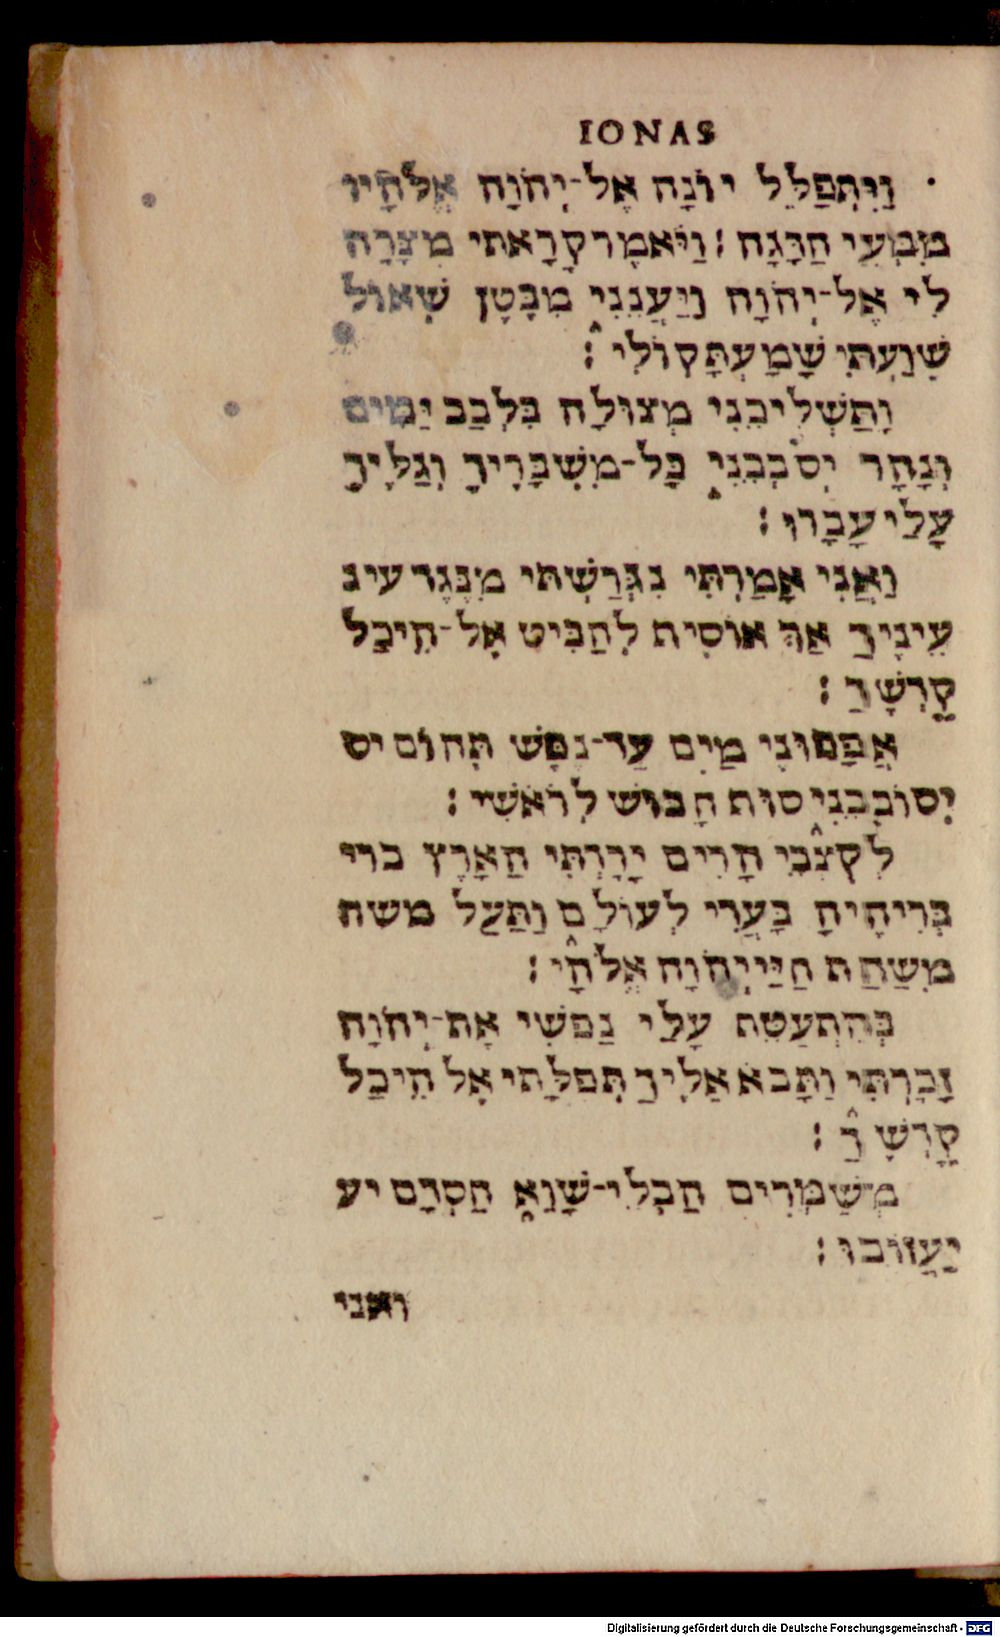 IONAS
וַיִּתְפַּלֵּל יוֹנָה אֶל-יְהֹוָה אֱלֹהָיו
מִמְּעֵי הַדָּגָה : וַיֹּאמֶר קָרָאתִי מִצָּרָה
לִי אֶל-יְהֹוָה וַיַּעֲנֵנִי מִבֶּטֶן שְׁאוֹל
שִׁוַּעְתִּי שָׁמַעְתָּ קוֹלִי :
וַתַּשְׁלִיכֵנִי מְצוּלָה בִּלְבַב יַמִּים
וְנָהָר יְסֹבְבֵנִי כָּל-מִשְׁבָּרֶיךָ וְגַלֶּיךָ
עָלַי עָבָרוּ :
וַאֲנִי אָמַרְתִּי נִגְרַשְׁתִּי מִנֶּגֶד עינ
עֵינֶיךָ אַךְ אוֹסִית לְהַבִּיט אֶל-הֵיכַל
קָדְשֶׁךָ :
אֲפָפוּנִי מַיִם עַד-נֶפֶשׁ תְּהוֹם יס
יְסוֹבְבֵנִי סוּת חָבוּשׁ לְרֹאשִׁי :
לְקִצְבֵי הָרִים יָרַדְתִּי הָאָרֶץ ברי
בְּרִיחֶיהָ בַּעֲדִי לְעוֹלָם וַתַּעַל משח
מִשַּׁחַת חַיַּי יְהֹוָה אֱלֹהָי :
בְּהִתְעַטֵּת עָלַי נַפְשִׁי אֶת-יְהֹוָה
זָכַרְתִּי וַתָּבֹא אֵלֶיךָ תְּפִלָּתִי אֶל הֵיכַל
קָדְשֶׁךָ :
מְשַׁמְּרִים הַבְלֵי-שָׁוְא חַסְדָּם יע
יַעֲזוֹבוּ :
ואני
Digitalisierung gefördert durch die Deutsche Forschungsgemeinschaft - DFG